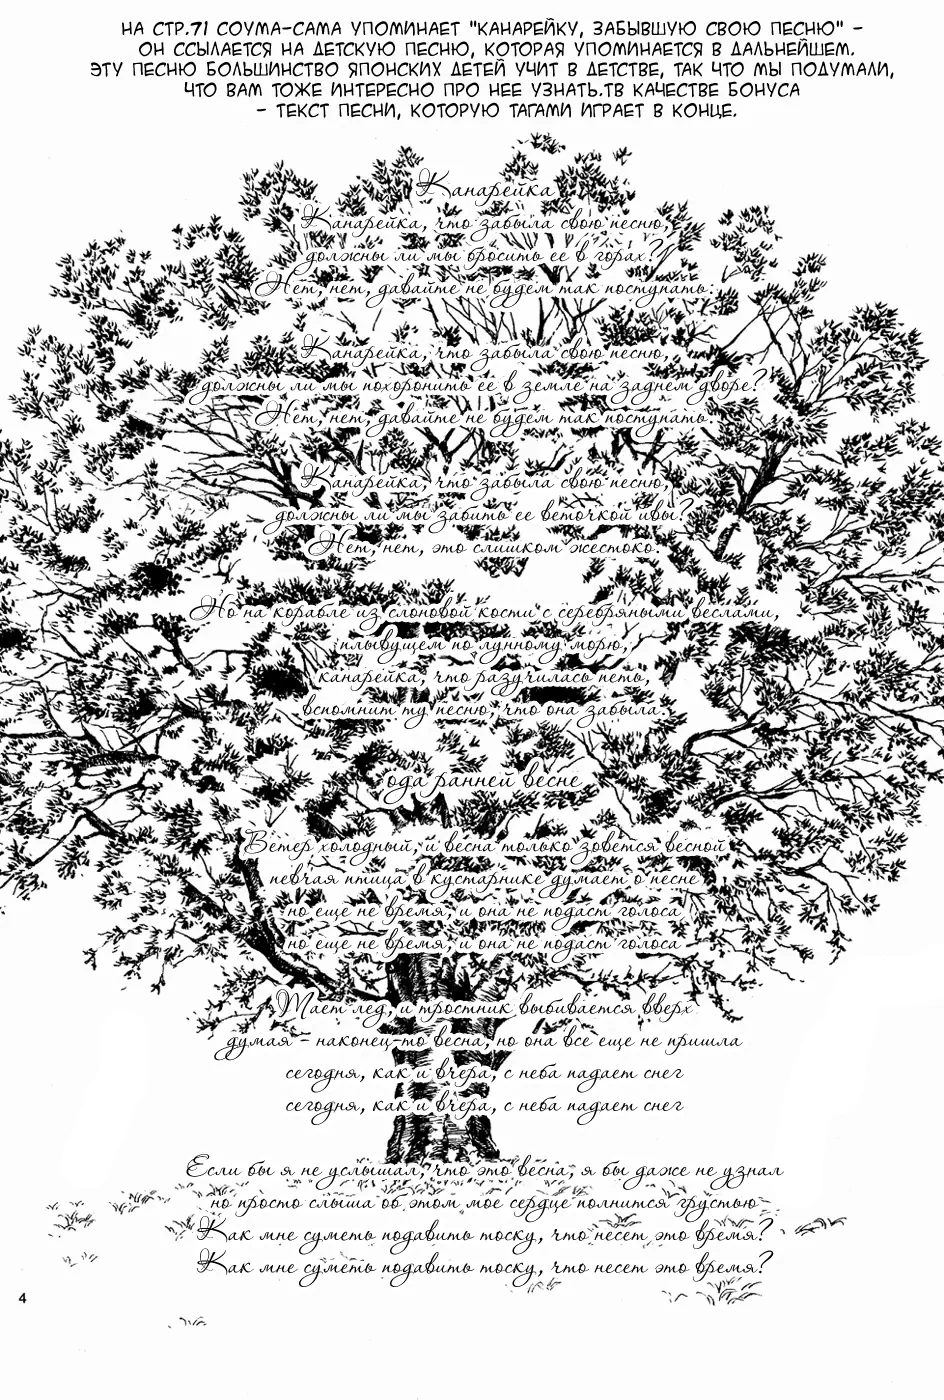 НА СТР.71 СОУМА-САМА УПОМИНАЕТ "КАНАРЕЙКУ, ЗАБЫВШУЮ СВОЮ ПЕСНЮ" -
ОН ССЫЛАЕТСЯ НА ДЕТСКУЮ ПЕСНЮ, КОТОРАЯ УПОМИНАЕТСЯ В ДАЛЬНЕЙШЕМ.
ЭТУ ПЕСНЮ БОЛЬШИНСТВО ЯПОНСКИХ ДЕТЕЙ УЧИТ В ДЕТСТВЕ, ТАК ЧТО МЫ ПОДУМАЛИ,
ЧТО ВАМ ТОЖЕ ИНТЕРЕСНО ПРО НЕЕ УЗНАТЬ.ТВ КАЧЕСТВЕ БОНУСА
- ТЕКСТ ПЕСНИ, КОТОРУЮ ТАГАМИ ИГРАЕТ В КОНЦЕ.
Канарейка
Канарейка, что забыла свою песню,
должны ли мы бросить ее в горах?
Нет, нет, давайте не будем так поступать.
Канарейка, что забыла свою песню,
должны ли мы похоронить ее в земле на заднем дворе?
Нет, нет, давайте не будем так поступать.
Канарейка, что забыла свою песню,
должны ли мы забить ее веточкой ивы?
Нет, нет, это слишком жестоко.
Но на корабле из слоновой кости с серебряными веслами,
плывущем по лунному морю,
канарейка, что разучилась петь,
вспомнит ту песню, что она забыла.
ода ранней весне
Ветер холодный, и весна только зовется весной
певчая птица в кустарнике думает о песне
но еще не время, и она не подаст голоса
но еще не время, и она не подаст голоса
Тает лед, и тростник выбивается вверх
думая - наконец-то весна, но она все еще не пришла
сегодня, как и вчера, с неба падает снег
сегодня, как и вчера, с неба падает снег
Если бы я не услышал, что это весна, я бы даже не узнал
но просто слыша об этом мое сердце полнится грустью
Как мне суметь подавить тоску, что несет это время?
Как мне суметь подавить тоску, что несет это время?
4